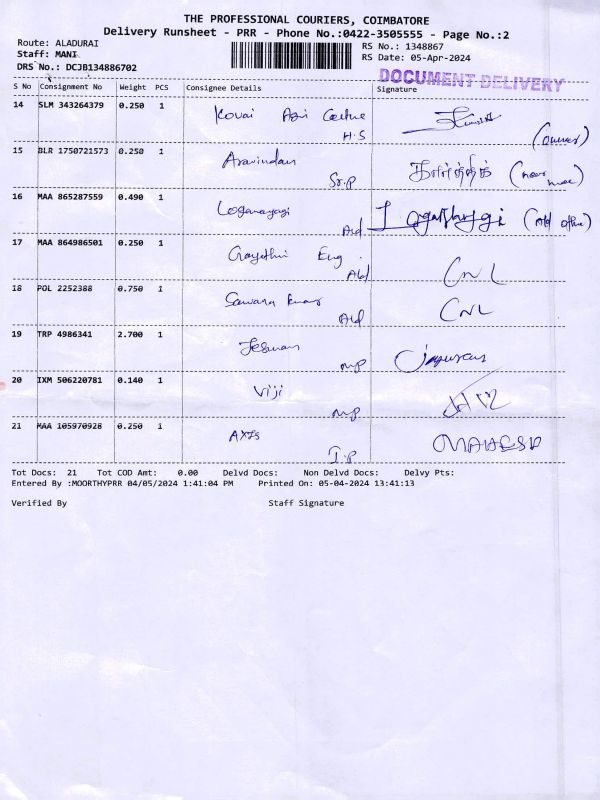 THE PROFESSIONAL COURIERS, COIMBATORE
Delivery Runsheet - PRR - Phone No.:0422-3505555 - Page No.:2
Route: ALADURAI
RS No.: 1348867
Staff: MANI
RS Date: 05-Apr-2024
DRS No.: DCJB134886702
DOCUMENT DELIVERY
S No Consignment No Weight PCS Consignee Details Signature
14 SLM 343264379 0.250 1 Kovai Agri
H.S (owner)
15 BLR 1750721573 0.250 1 Aravindan
Sr.P கார்த்திக்
16 MAA 865287559 0.490 1 Loganayagi
Ald
17 MAA 864986501 0.250 1 Gayathri Eng.
Ald CNL
18 POL 2252388 0.750 1 Kumar
Ald CNL
19 TRP 4986341 2.700 1
MP
20 IXM 506220781 0.140 1 Viji
MP
21 MAA 105970928 0.250 1 AXIS
I.P MAHESH
Tot Docs: 21 Tot COD Amt: 0.00 Delvd Docs: Non Delvd Docs: Delvy Pts:
Entered By :MOORTHYPRR 04/05/2024 1:41:04 PM Printed On: 05-04-2024 13:41:13
Verified By Staff Signature